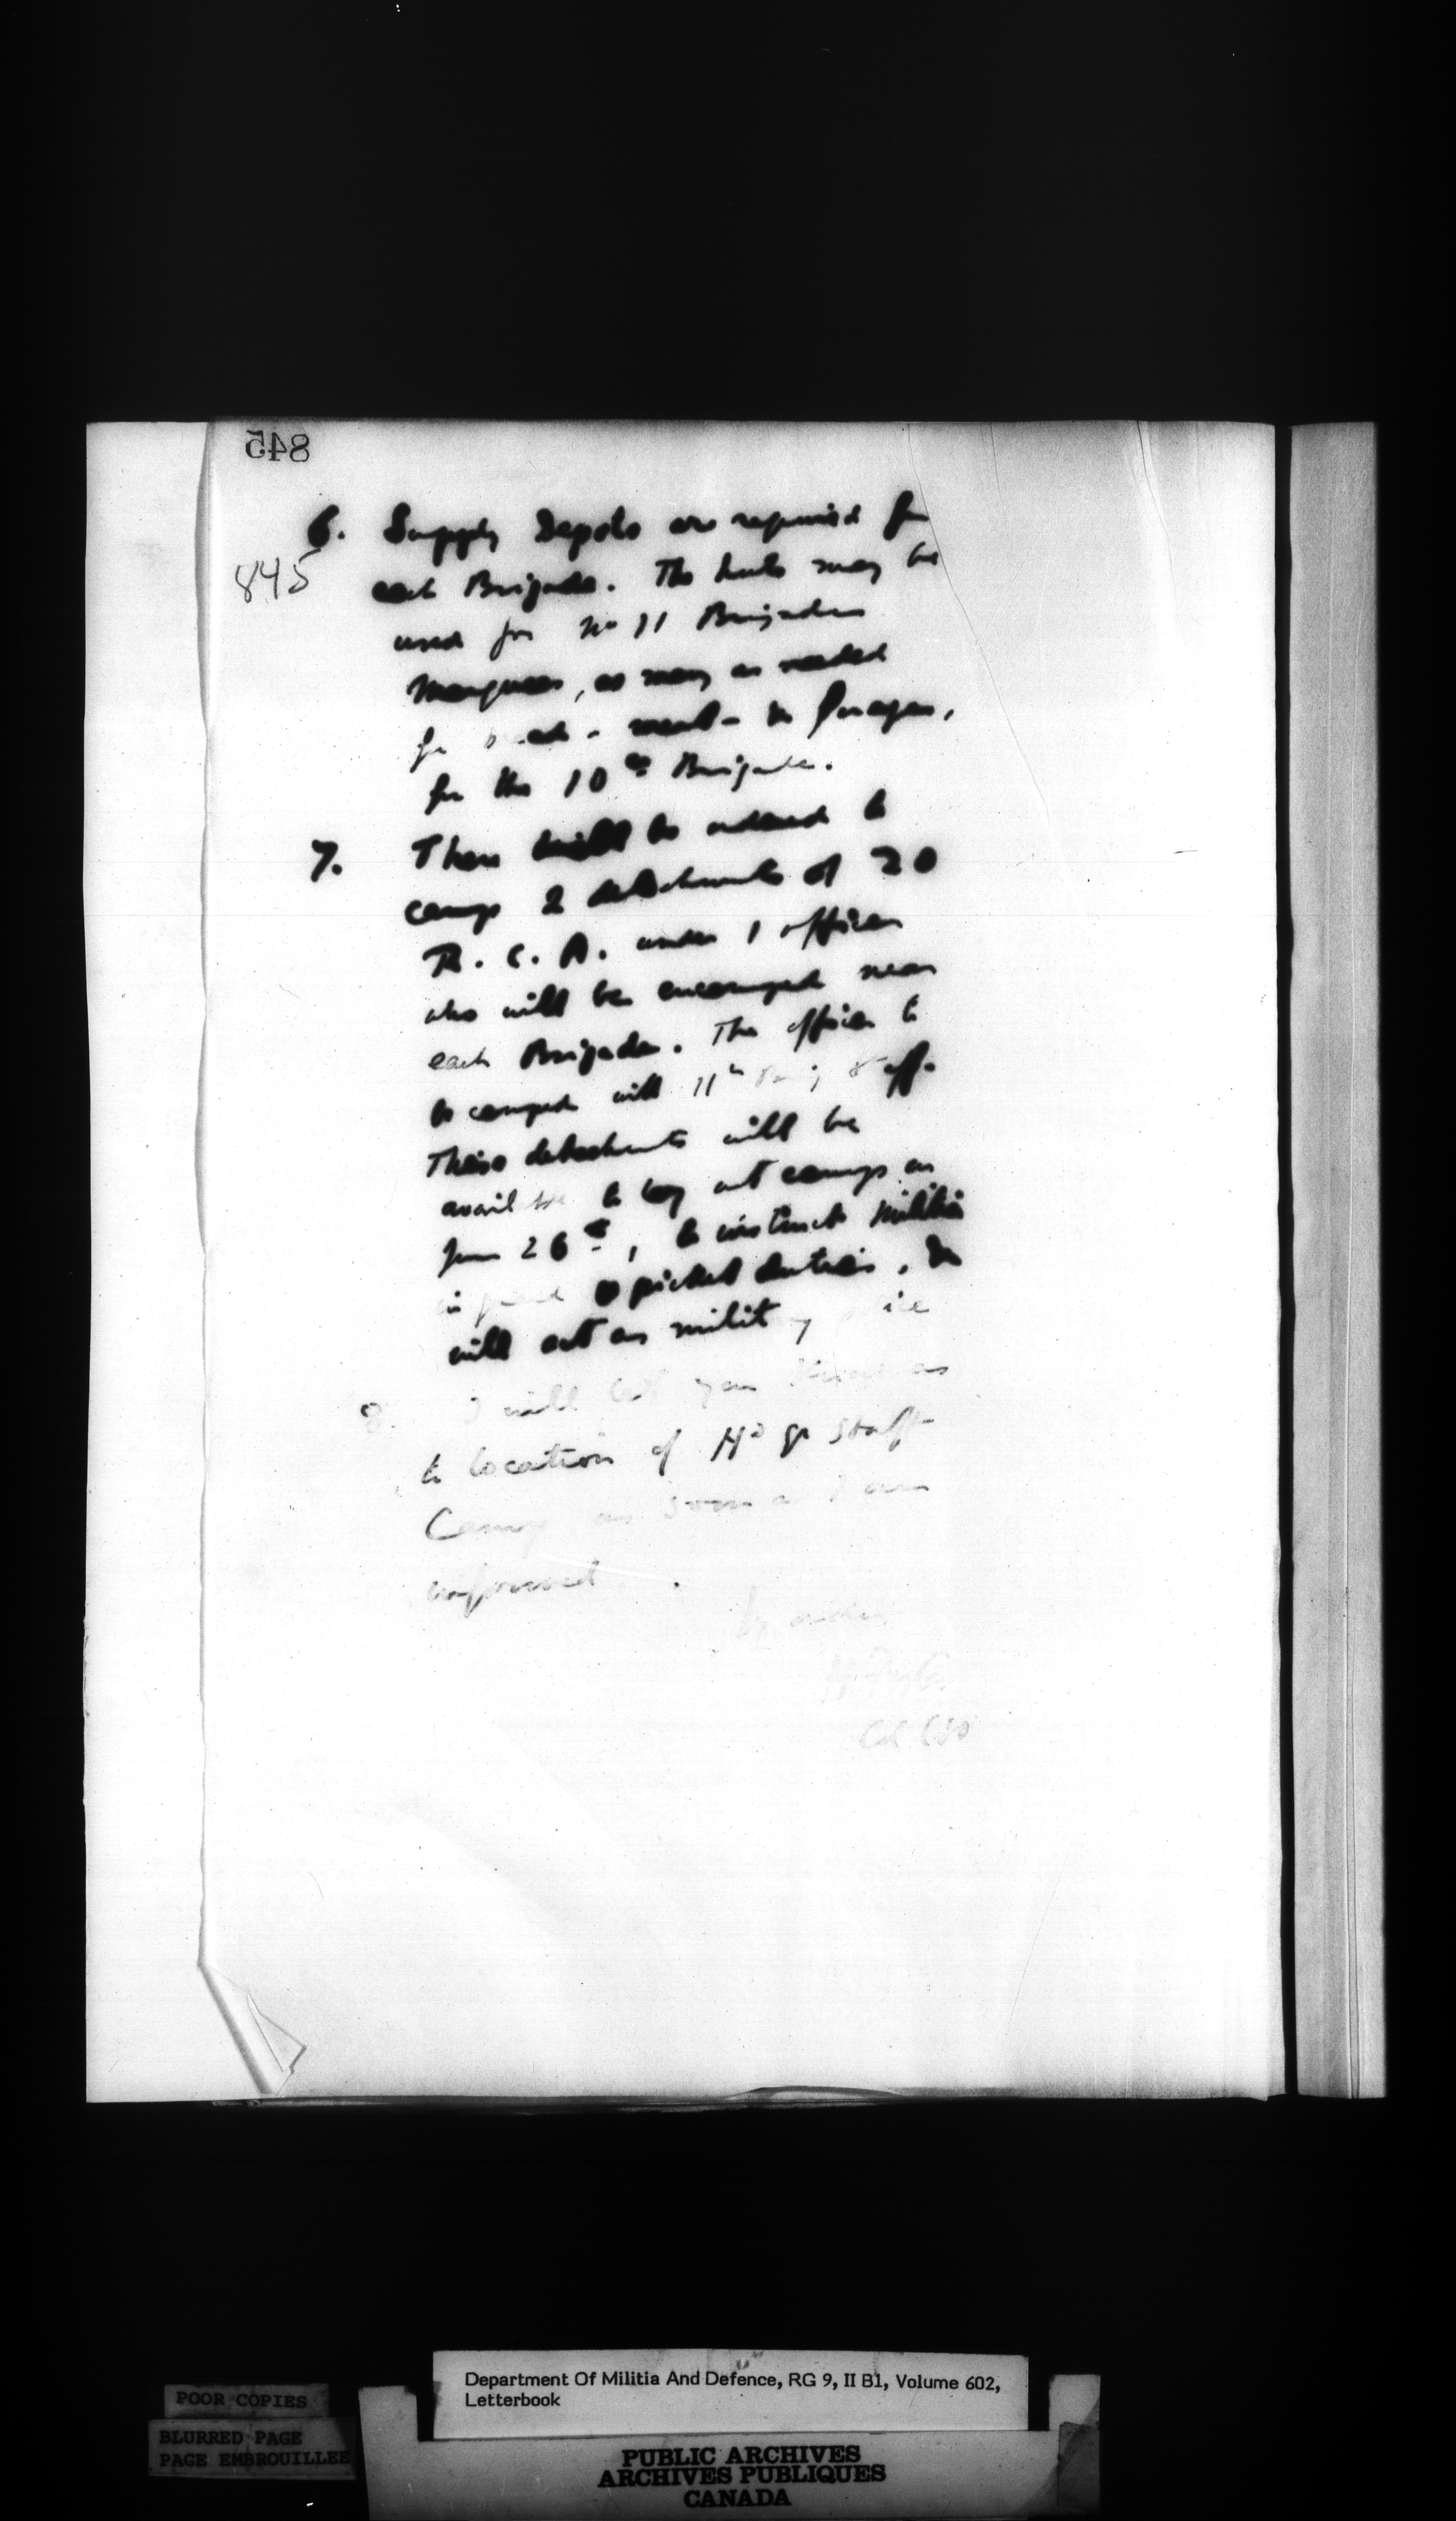 845
6. Supply Depots are required for
845
each Brigade. The huts may be
used for No 11 Brigade
Marquees, as many as needed
for bread - meat - & forage,
for the 10th Brigade.
7. There will be ordered to
camp 2 detachments of 20
R. C. A. under 1 officer
who will be encamped near
each Brigade. The officer to
be camped with 11th Brig Staff.
These detachments will be
available to lay out camp on
June 26th, to instruct militia
in guard & picket duties, &
will act as military police
8. I will let you know as
to location of Hd Qr Staff
Camp as soon as I am
informed.
by order
Col
Department Of Militia And Defence, RG 9, II B1, Volume 602,
Letterbook
POOR COPIES
BLURRED PAGE
PAGE EMBROUILLEE
PUBLIC ARCHIVES
ARCHIVES PUBLIQUES
CANADA